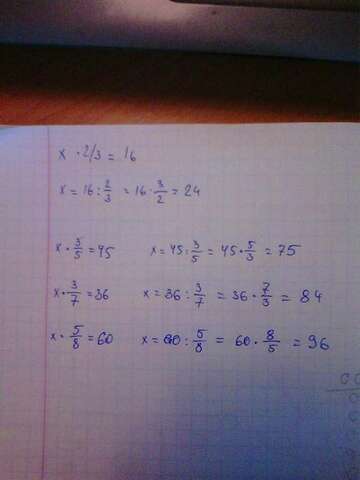 x · 2/3 = 16
x = 16 : 2/3 = 16 · 3/2 = 24
x · 3/5 = 45 x = 45 : 3/5 = 45 · 5/3 = 75
x · 3/7 = 36 x = 36 : 3/7 = 36 · 7/3 = 84
x · 5/8 = 60 x = 60 : 5/8 = 60 · 8/5 = 96